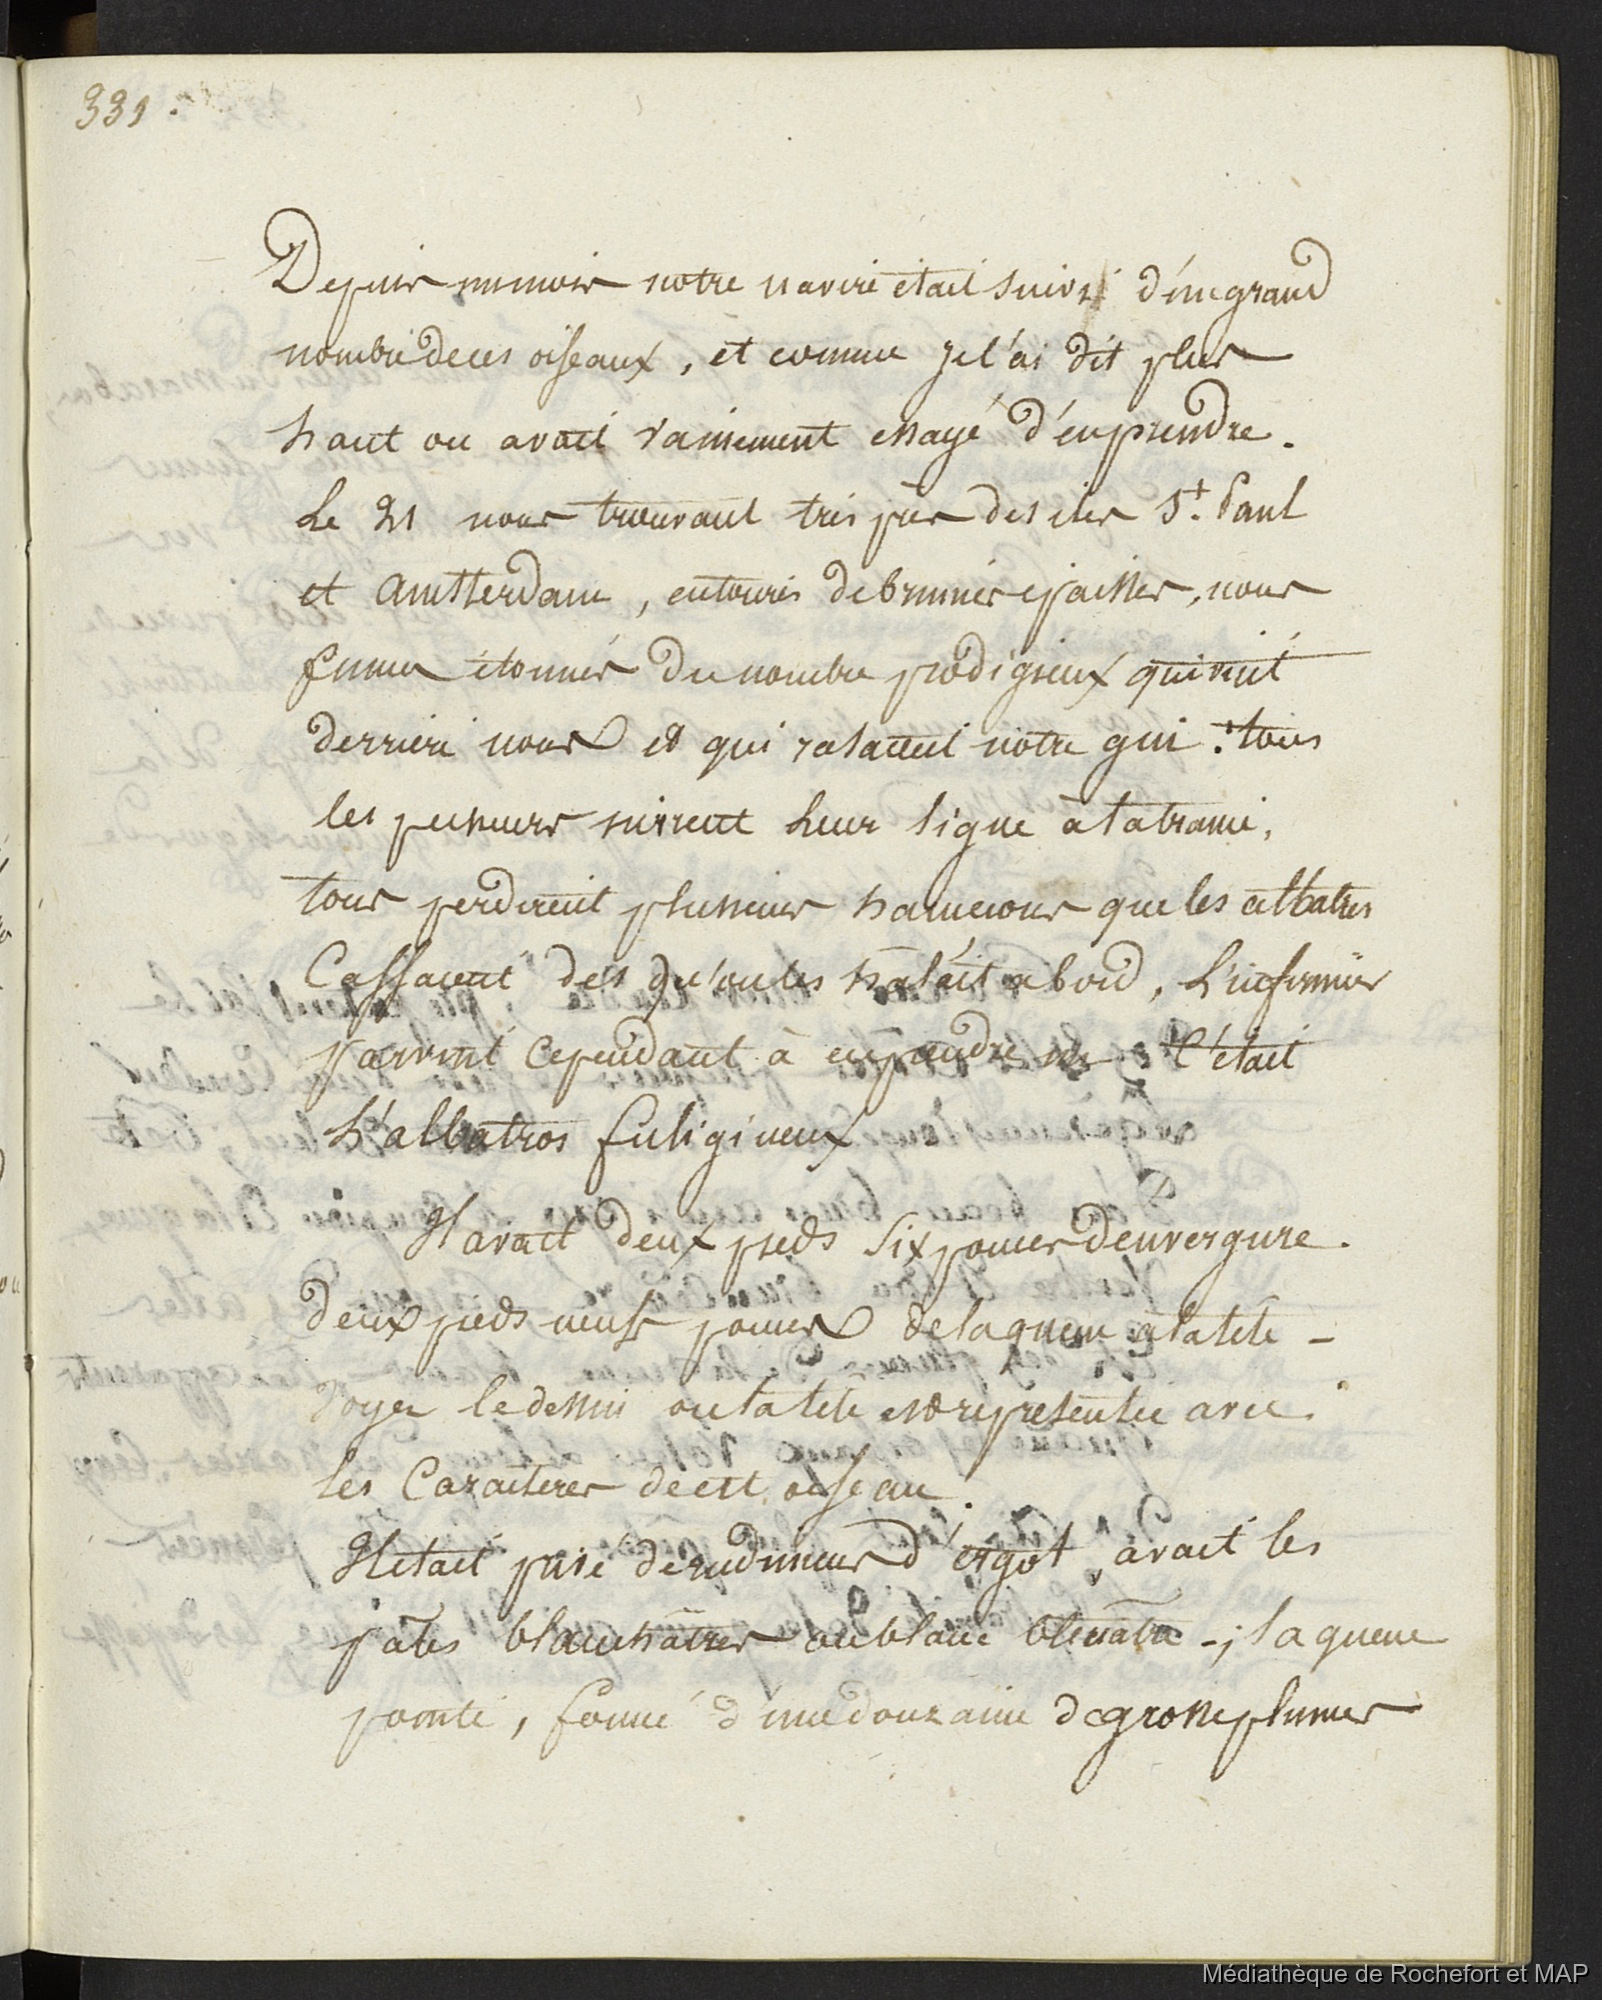 331.
Depuis un mois notre navire était suivi d'un grand
nombre de ces oiseaux, et comme je l'ai dit plus
haut on avait vainement essayé d'en prendre.
Le 21 nous trouvant très près des iles St. Paul
et Amsterdam, entourés de brumes epaisses, nous
fumes étonnés du nombre prodigieux qui vint
derrière nous et qui rasaient notre gui. tous
les pecheurs mirent leur ligne à la traine,
tous perdirent plusieurs hamecons que les albatres
Cassaient dès qu'on les halait a bord, L'infirmier
parvint cependant à en prendre un. C'était
L'albatros fuligineux
Il avait deux pieds six pouces d'envergure.
deux pieds neuf pouces de la queue à la tete -
Voyez le dessin ou la tete est representée avec
les Caracteres de cet oiseau.
Il etait privé de rudimens d'ergot, avait les
pates blanchatres ou blanc bleuatre -; la queue
pointe, formé d'une douzaine de grosse plumes
Médiathèque de Rochefort et MAP